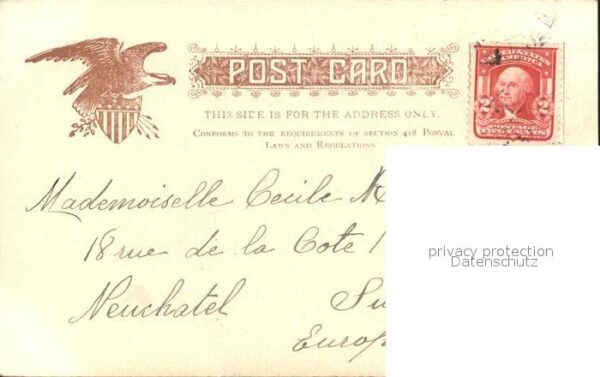 POST CARD
THIS SIDE IS FOR THE ADDRESS ONLY.
CONFORMS TO THE REQUIREMENTS OF SECTION 418 POSTAL
LAWS AND REGULATIONS
UNITED STATES
OF AMERICA
2 2
POSTAGE
TWO CENTS
Mademoiselle Cecile
18 rue de la Cote 1
Neuchatel Su
Europ
privacy protection
Datenschutz